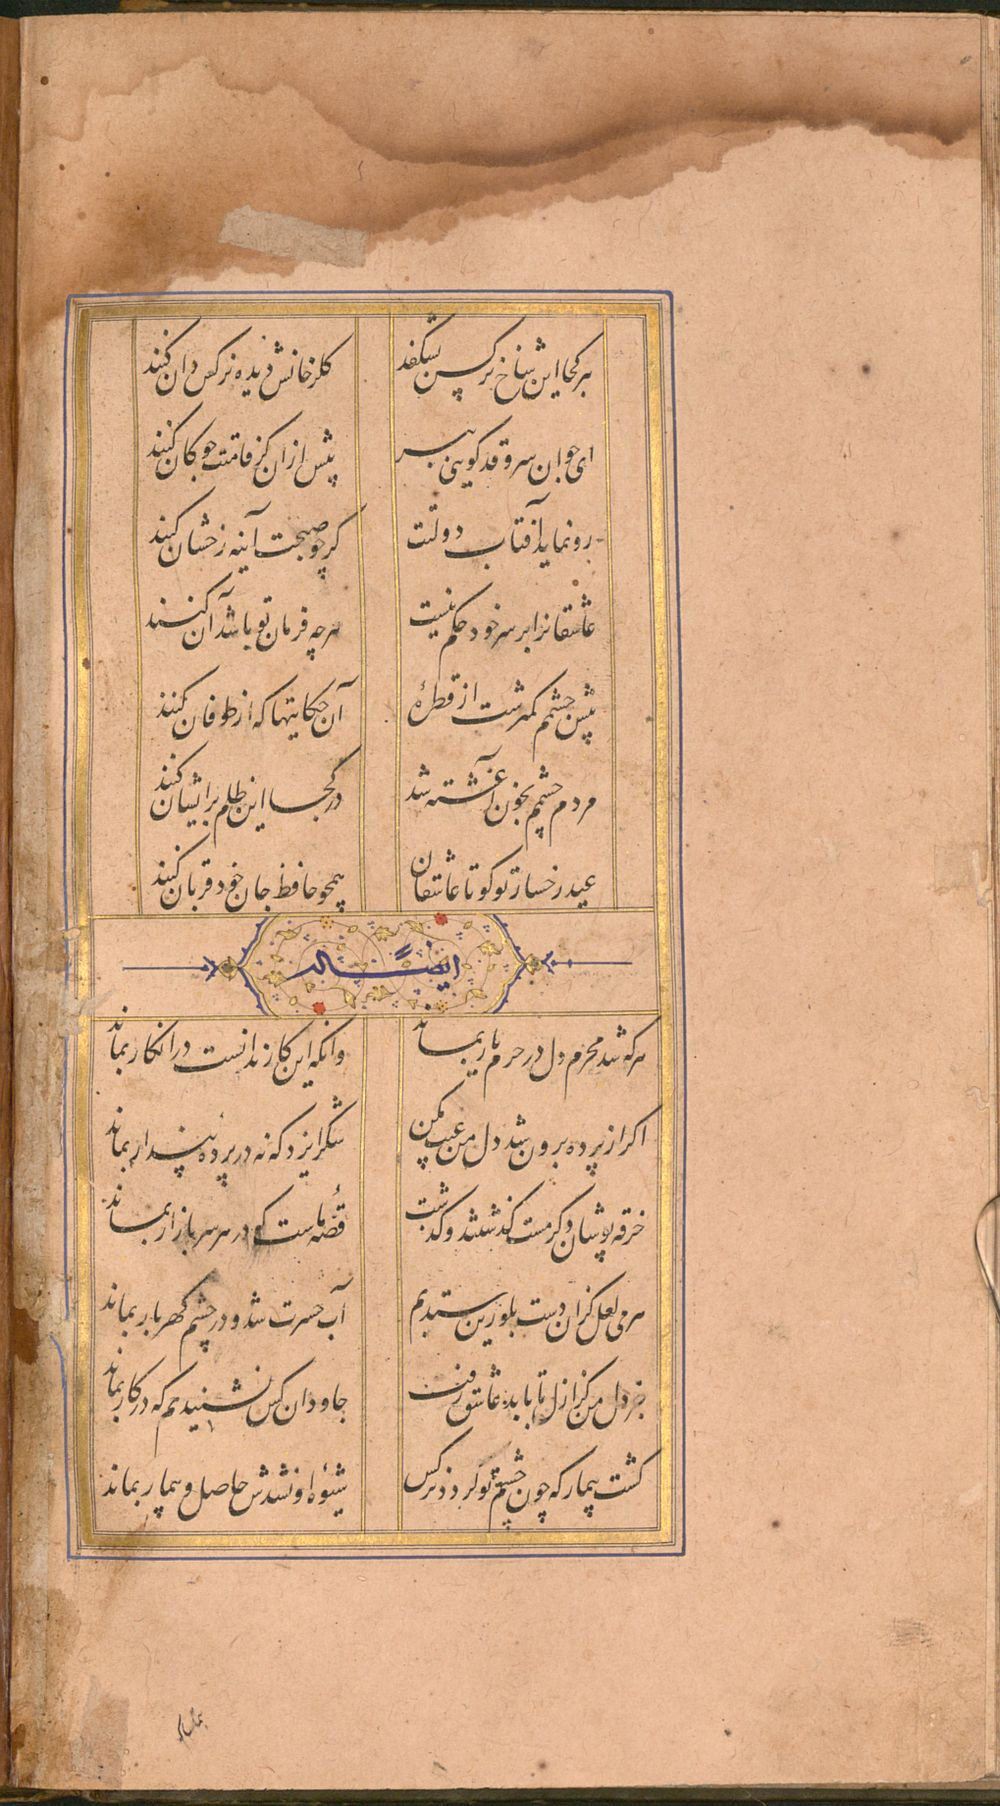 هر کجا این شاخ نرکس بشکفد کلرخانش دیده نرکس دان کنند
ای جوان سروقد کویی ببر پیش ازان کز قامتت چوکان کنند
رو نماید آفتاب دولتت کر چو صبحت آینه رخشان کنند
عاشقانرا بر سر خود حکم نیست هرچه فرمان تو باشد آن کنند
پیش چشمم کمترست از قطرهٔ آن حکایتها که از طوفان کنند
مردم چشمم بخون آغشته شد در کجا این ظلم بر ایشان کنند
عید رخسار تو کو تا عاشقان همچو حافظ جان خود قربان کنند
ایضاً له
هر که شد محرم دل در حرم یار بماند وانکه این کار ندانست در انکار بماند
اکر از پرده برون شد دل من عیب مکن شکر ایزد که نه در پرده پندار بماند
خرقه پوشان دکر مست کذشتند و کذشت قصه ماست که در هر سر بازار بماند
هر می لعل کزان دست بلورین ستدیم آب حسرت شد و در چشم کهربار بماند
جز دل من کز ازل تا بابد عاشق رفت جاودان کس نشنیدیم که در کار بماند
کشت بیمار که چون چشم تو کردد نرکس شیوه او نشدش حاصل و بیمار بماند